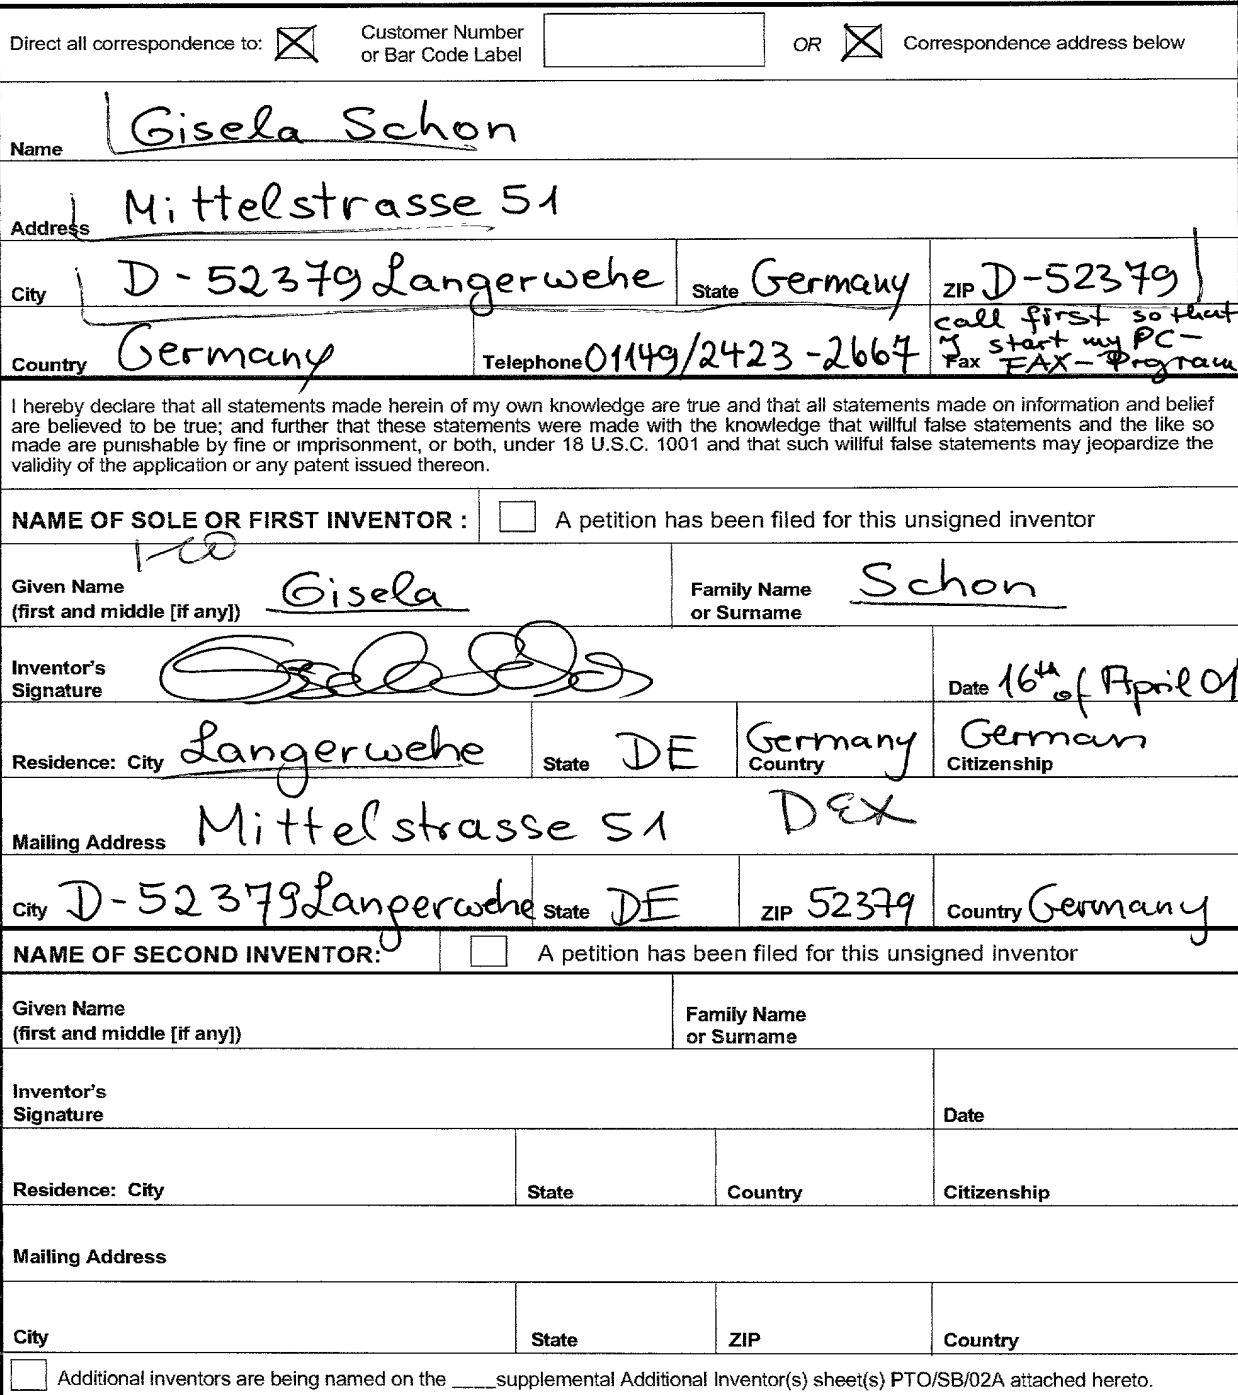 Direct all correspondence to: Customer Number or Bar Code Label OR Correspondence address below
Name Gisela Schon
Address Mittelstrasse 51
City D-52379 Langerwehe State Germany ZIP D-52379
Country Germany Telephone 01149/2423-2667 Fax call first so that I start my PC-FAX-Program
I hereby declare that all statements made herein of my own knowledge are true and that all statements made on information and belief
are believed to be true; and further that these statements were made with the knowledge that willful false statements and the like so
made are punishable by fine or imprisonment, or both, under 18 U.S.C. 1001 and that such willful false statements may jeopardize the
validity of the application or any patent issued thereon.
NAME OF SOLE OR FIRST INVENTOR : A petition has been filed for this unsigned inventor
Given Name
(first and middle [if any]) Gisela
Family Name
or Surname Schon
Inventor's
Signature
Date 16th of April 01
Residence: City Langerwehe State DE Country Germany Citizenship German
Mailing Address Mittelstrasse 51 DEX
City D-52379 Langerwehe State DE ZIP 52379 Country Germany
NAME OF SECOND INVENTOR: A petition has been filed for this unsigned inventor
Given Name
(first and middle [if any])
Family Name
or Surname
Inventor's
Signature
Date
Residence: City State Country Citizenship
Mailing Address
City State ZIP Country
Additional inventors are being named on the ____supplemental Additional Inventor(s) sheet(s) PTO/SB/02A attached hereto.